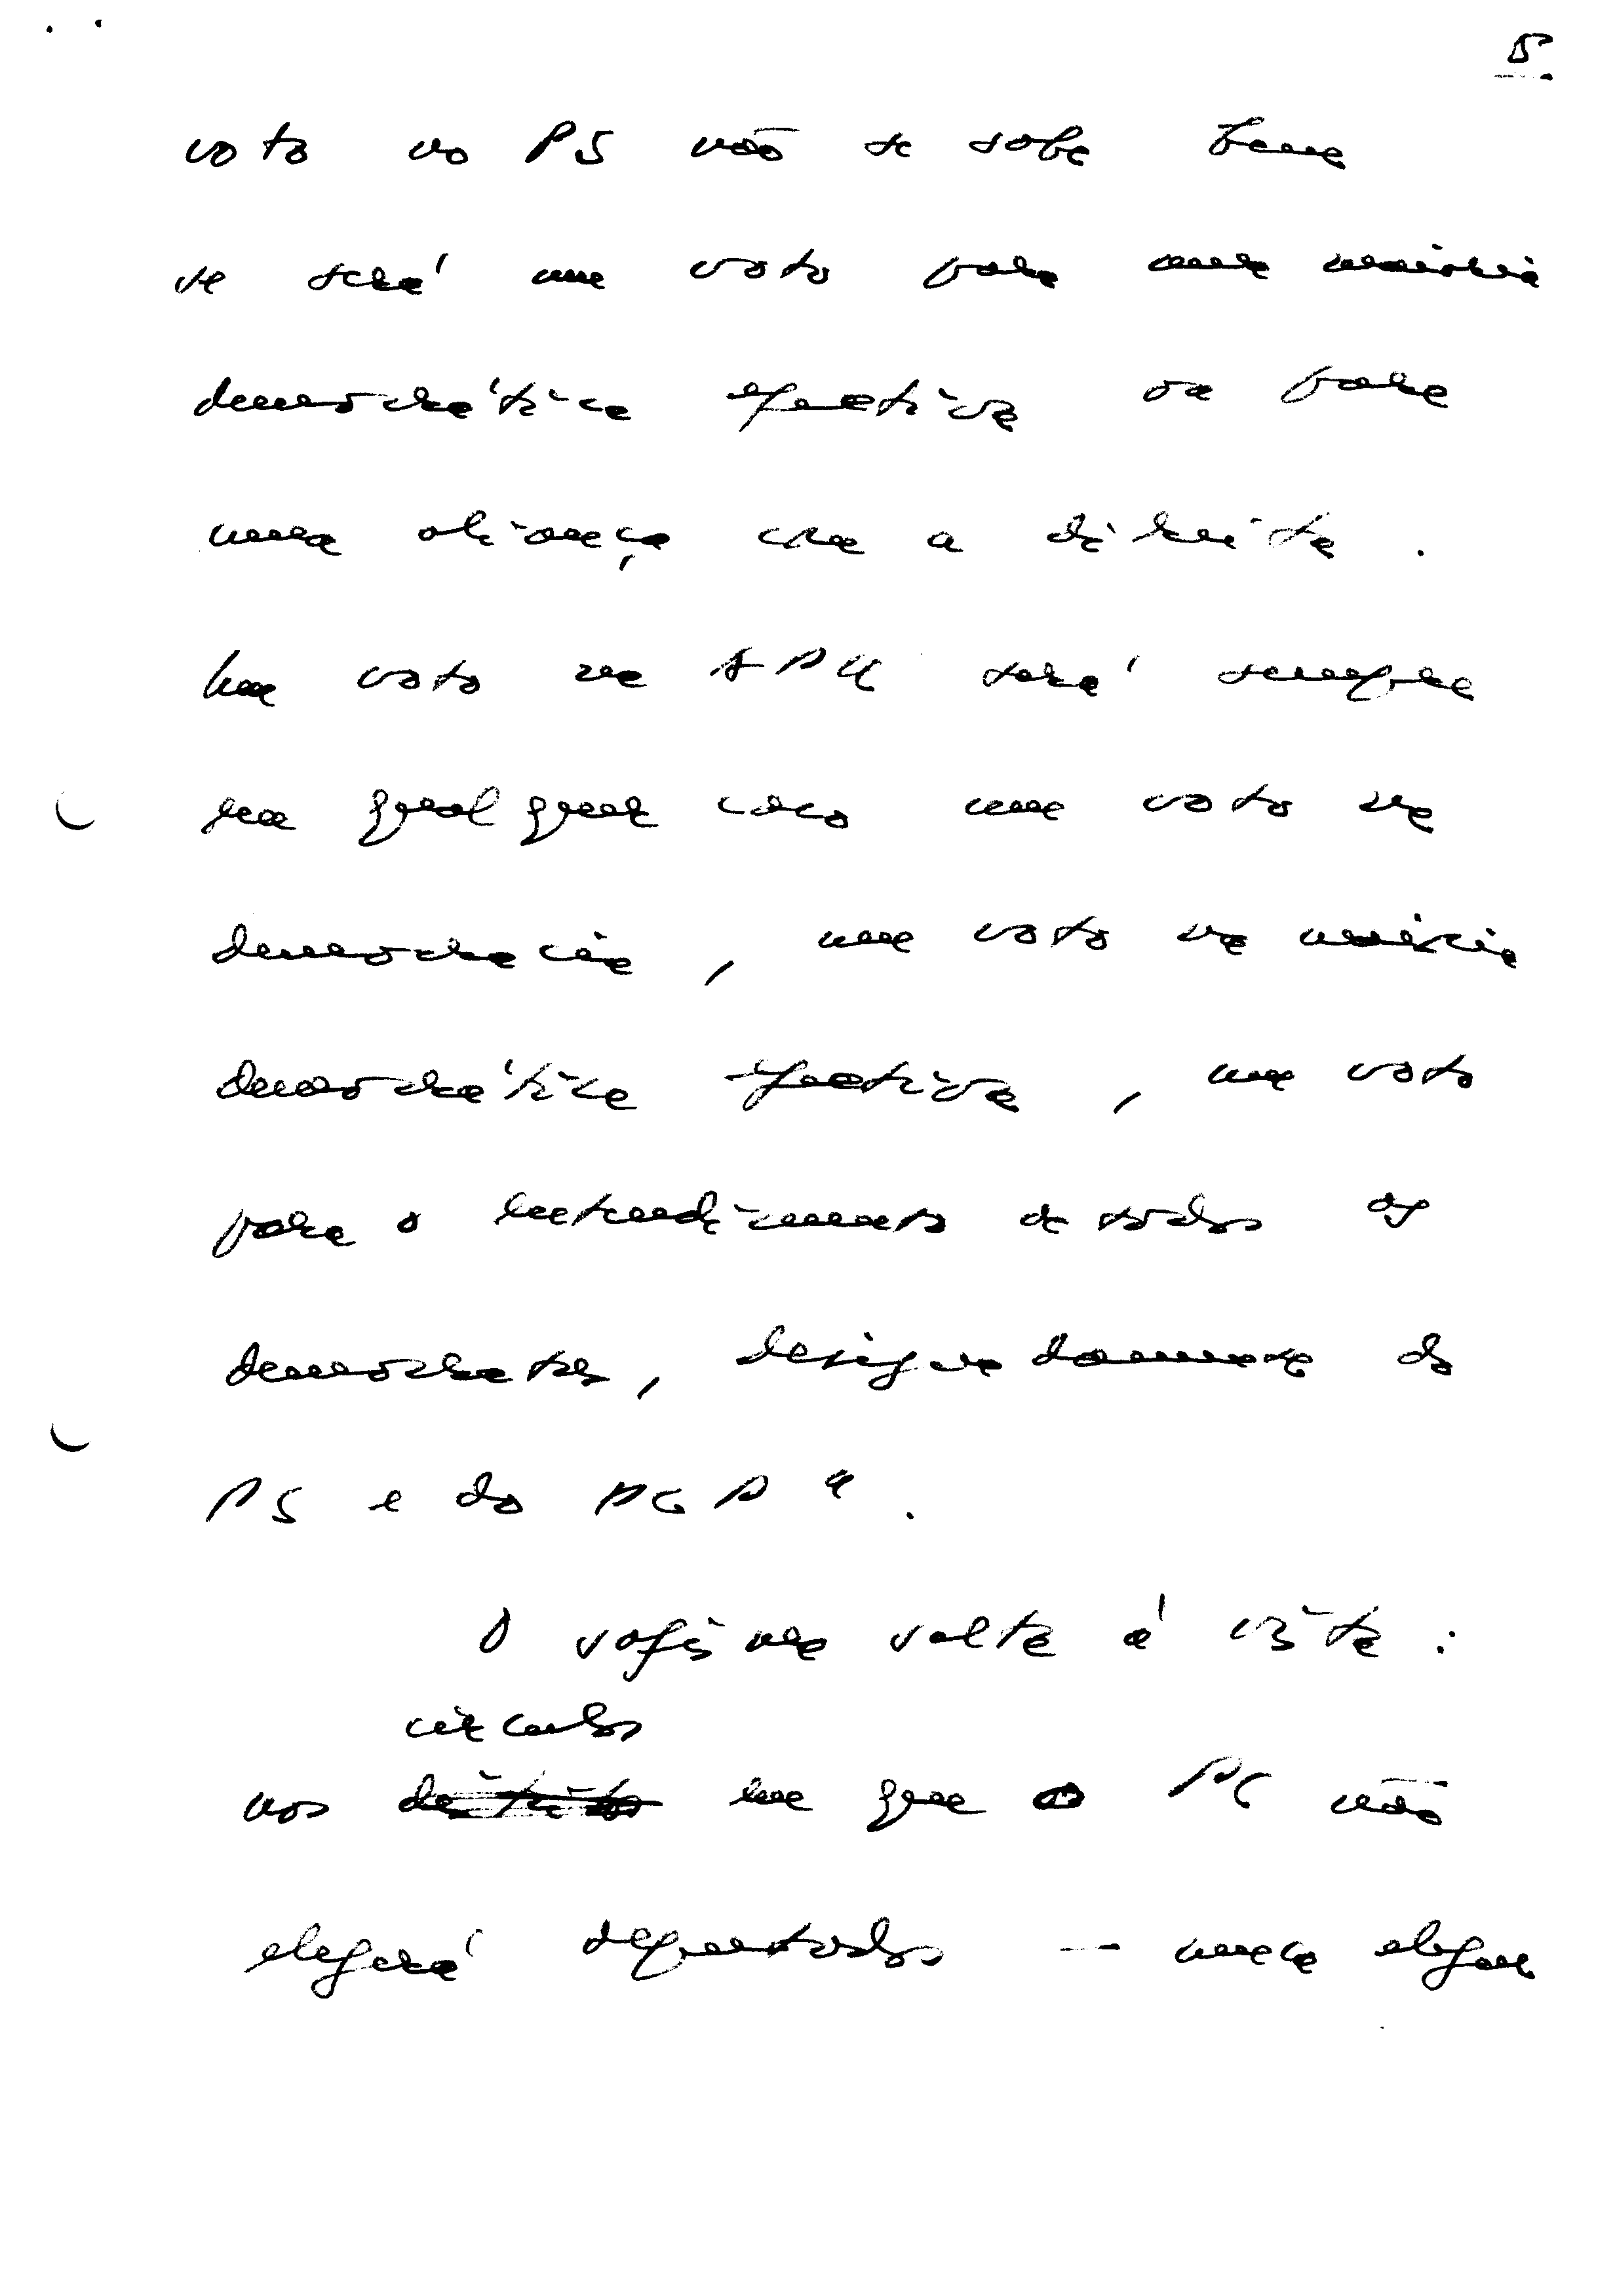 5
voto no PS não se sabe bem
se será um voto para uma maioria
democrática efectiva ou para
uma aliança com a direita.
Um voto na APU será sempre
em qualquer caso um voto na
democracia, um voto na maioria
democrática efectiva, um voto
para o entendimento de todos os
democratas, designadamente do
PS e do PCP".
O sofisma salta à vista:
círculos
nos distritos em que o PC não
elegerá deputados — nunca elegeu